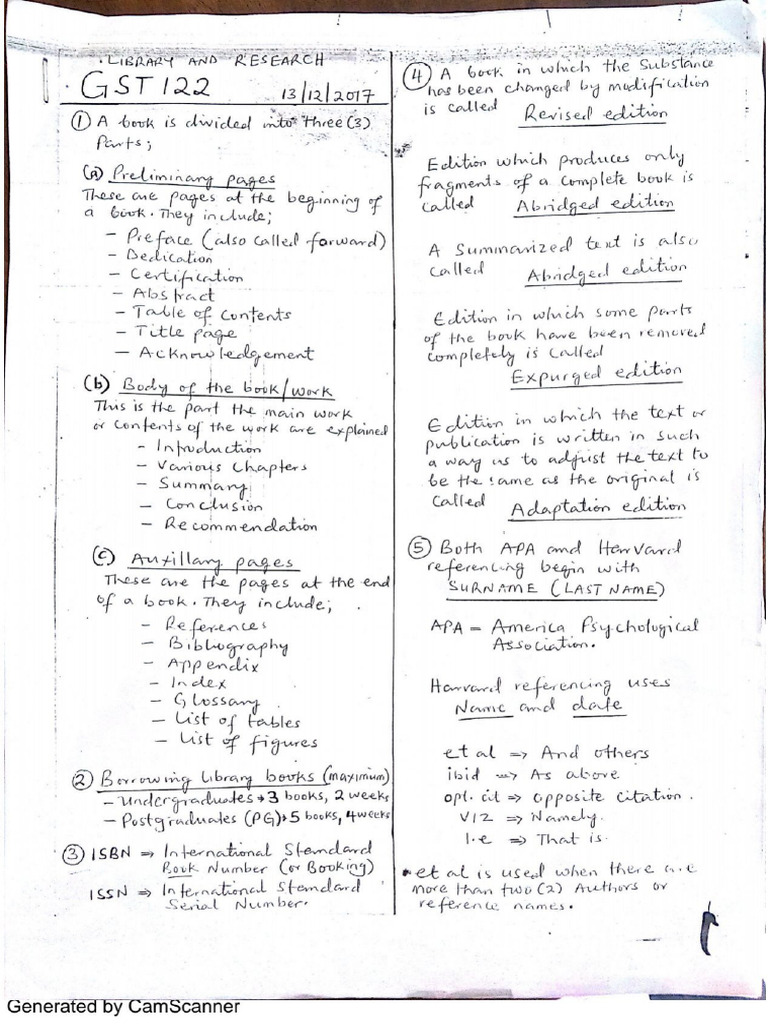 LIBRARY AND RESEARCH
GST 122
13/12/2017
① A book is divided into three (3)
Parts;
(a) Preliminary pages
These are pages at the beginning of
a book. They include;
- Preface (also called forward)
- Dedication
- Certification
- Abstract
- Table of contents
- Title page
- Acknowledgement
(b) Body of the book/work
This is the part the main work
or contents of the work are explained
- Introduction
- Various Chapters
- Summary
- Conclusion
- Recommendation
(c) Auxillary pages
These are the pages at the end
of a book. They include;
- References
- Bibliography
- Appendix
- Index
- Glossary
- List of tables
- List of figures
② Borrowing Library books (maximum)
- Undergraduates → 3 books, 2 weeks
- Postgraduates (PG) → 5 books, 4 weeks
③ ISBN ⇒ International Standard
Book Number (or Booking)
ISSN ⇒ International Standard
Serial Number.
④ A book in which the substance
has been changed by modification
is called Revised edition
Edition which produces only
fragments of a complete book is
called Abridged edition
A summarized text is also
called Abridged edition
Edition in which some parts
of the book have been removed
completely is called
Expurged edition
Edition in which the text or
publication is written in such
a way as to adjust the text to
be the same as the original is
called Adaptation edition
⑤ Both APA and Harvard
referencing begin with
SURNAME (LAST NAME)
APA = America Psychological
Association.
Harvard referencing uses
Name and date
et al ⇒ And others
ibid ⇒ As above
opt. cit ⇒ opposite citation.
VIZ ⇒ Namely.
I.e ⇒ That is.
• et al is used when there are
more than two (2) Authors or
reference names.
Generated by CamScanner